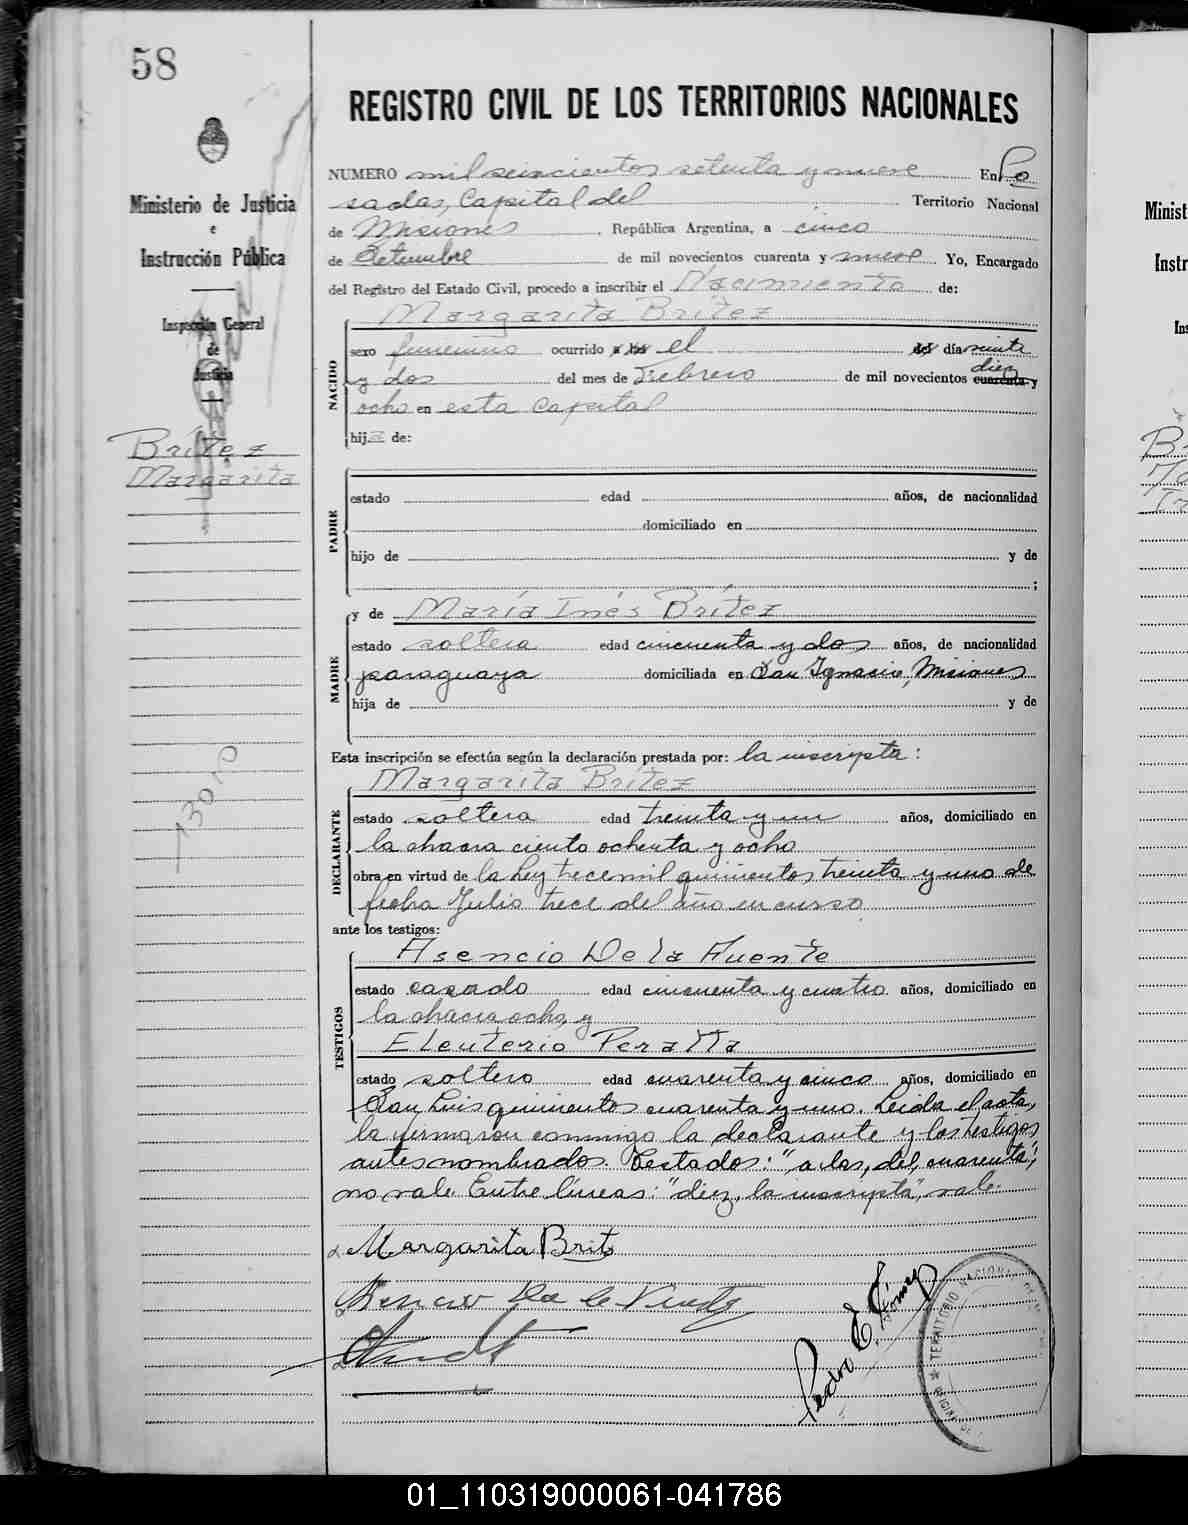 58
REGISTRO CIVIL DE LOS TERRITORIOS NACIONALES
Ministerio de Justicia
e
Instrucción Pública
Inspección General
de
Justicia
Brítez
Margarita
13010
NUMERO mil seiscientos setenta y nueve En Po
sadas, Capital del Territorio Nacional
de Misiones, República Argentina, a cinco
de Setiembre de mil novecientos cuarenta y nueve Yo, Encargado
del Registro del Estado Civil, procedo a inscribir el Nacimiento de:
NACIDO
Margarita Brítez
sexo femenino ocurrido a las el del día veinte
y dos del mes de Febrero de mil novecientos cuarenta y diez
ocho en esta Capital
hija de:
PADRE
estado edad años, de nacionalidad
domiciliado en
hijo de y de
;
MADRE
y de María Inés Brítez
estado soltera edad cincuenta y dos años, de nacionalidad
paraguaya domiciliada en San Ignacio, Misiones
hija de y de
Esta inscripción se efectúa según la declaración prestada por: la inscripta:
DECLARANTE
Margarita Brítez
estado soltera edad treinta y un años, domiciliado en
la chacra ciento ochenta y ocho
obra en virtud de la Ley trece mil quinientos treinta y uno de
fecha Julio trece del año en curso
ante los testigos:
TESTIGOS
Asencio De la Fuente
estado casado edad cincuenta y cuatro años, domiciliado en
la chacra ocho, y
Eleuterio Peralta
estado soltero edad cuarenta y cinco años, domiciliado en
San Luis quinientos cuarenta y uno. Leída el acta,
la firmaron conmigo la declarante y los testigos
antes nombrados. Testados: "a las, del, cuarenta",
no vale. Entre líneas: "diez, la inscripta", vale.
Margarita Brits
Asencio De la Fuente
Pedro E. Gómez
TERRITORIO NACIONAL DE
OFICINA DE
Minist
Instr
Ins
01_110319000061-041786